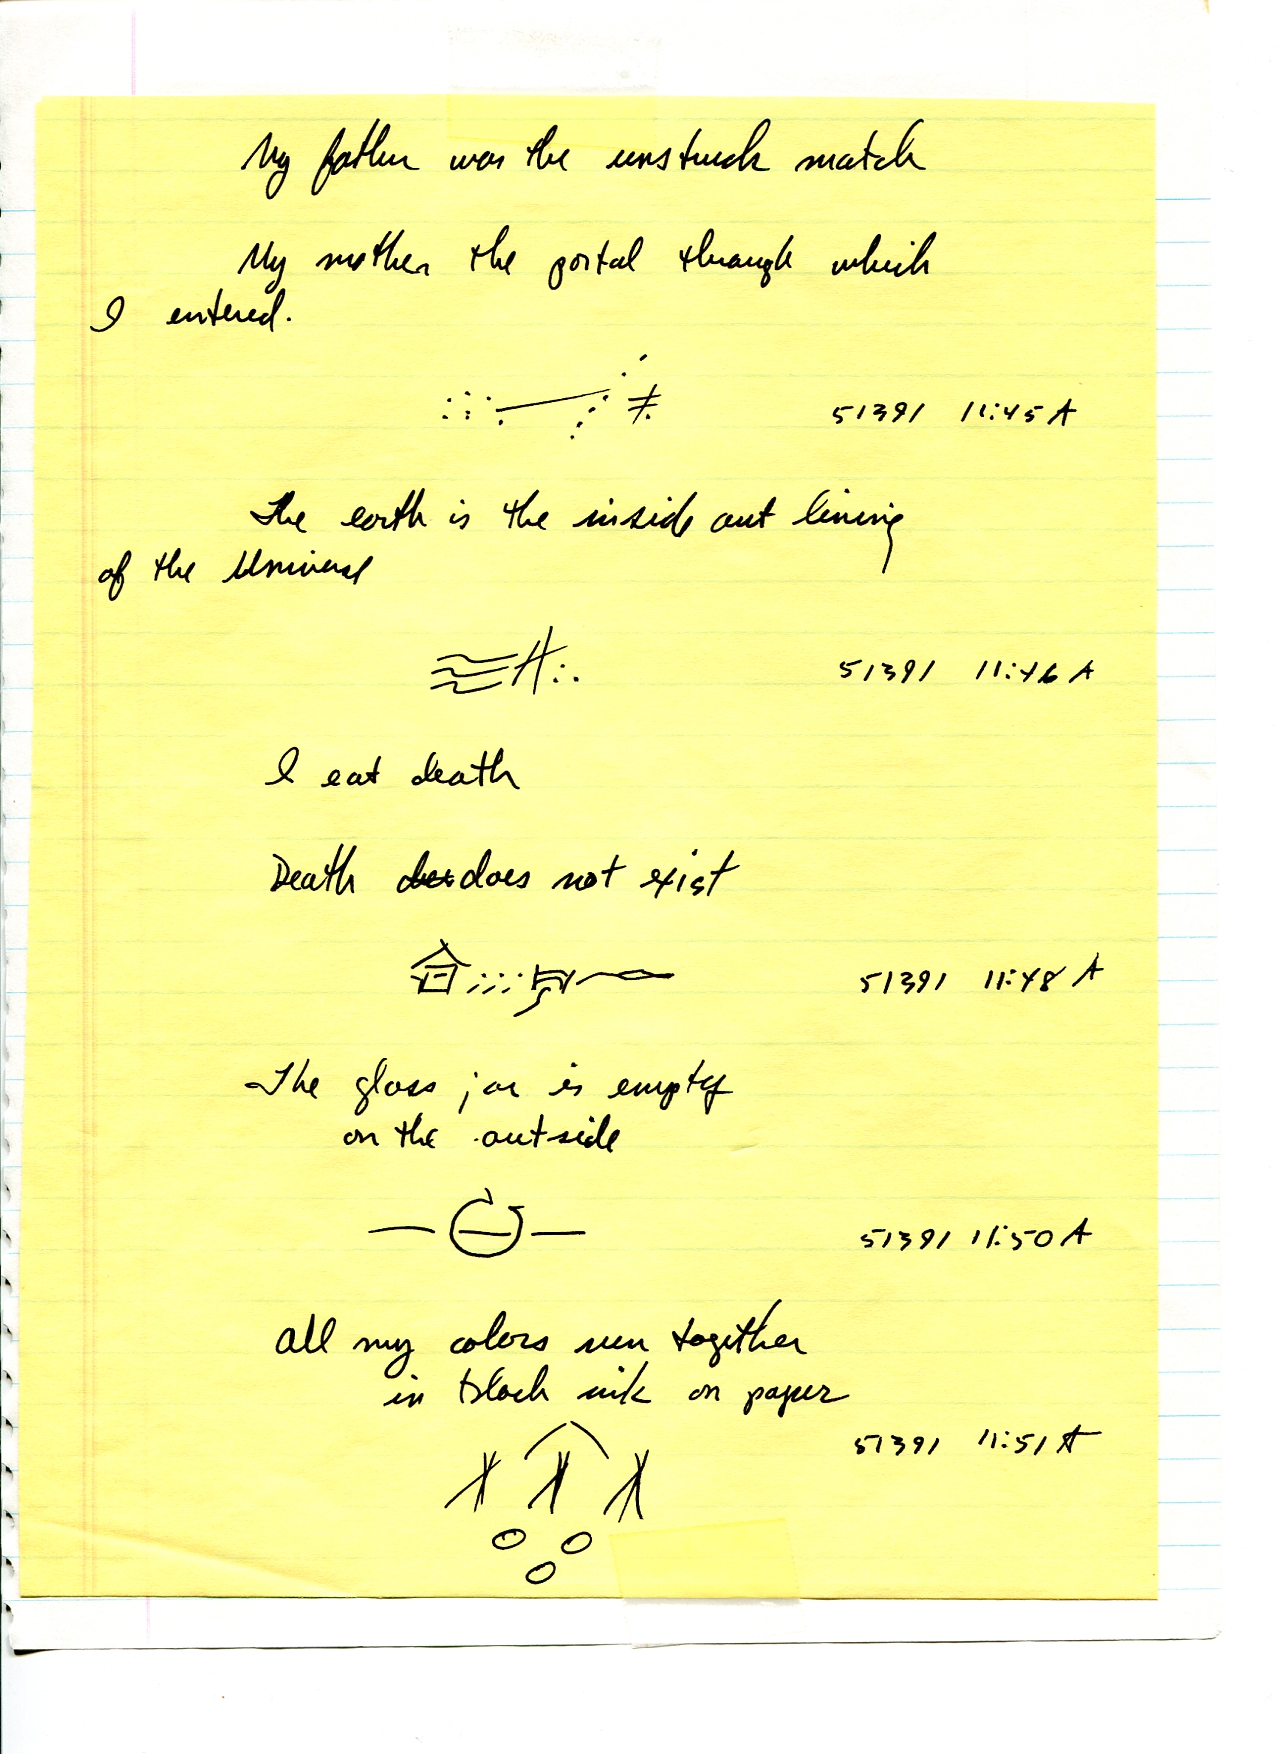 My father was the unstruck match
My mother the portal through which
I entered.
51391 11:45 A
The earth is the inside out lining
of the Universe
51391 11:46 A
I eat death
Death does not exist
51391 11:48 A
The glass jar is empty
on the outside
51391 11:50 A
All my colors run together
in black ink on paper
51391 11:51 A